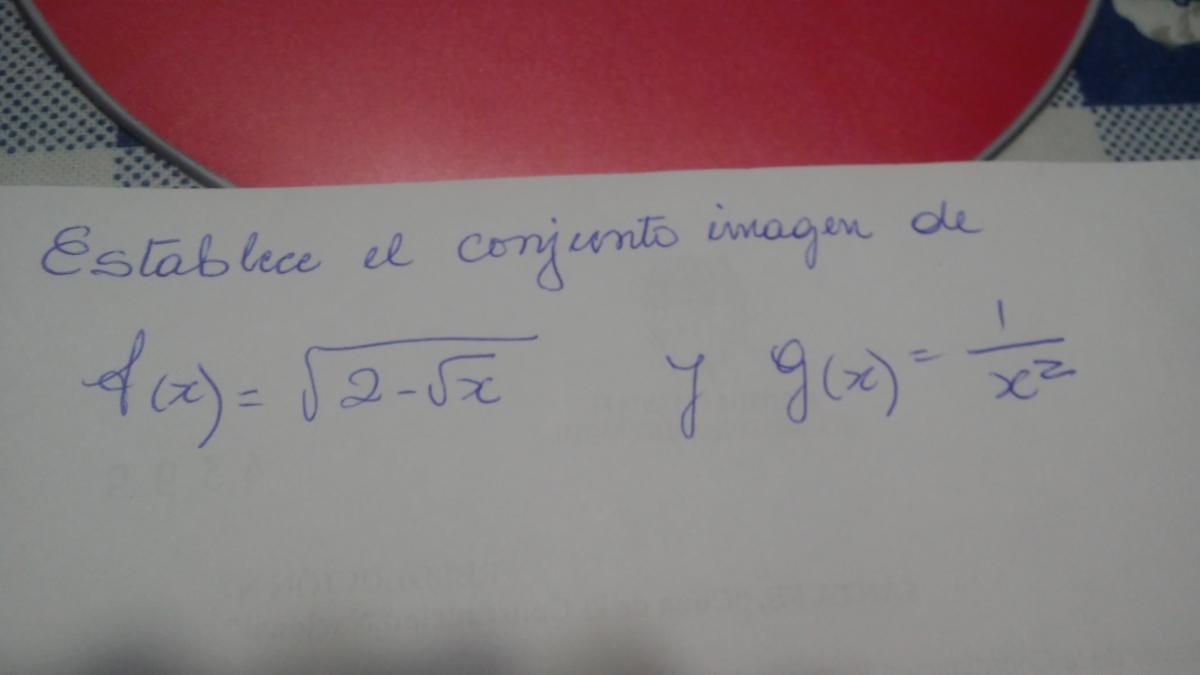 Establece el conjunto imagen de
f(x) = √(2-√x) y g(x) = 1/x²